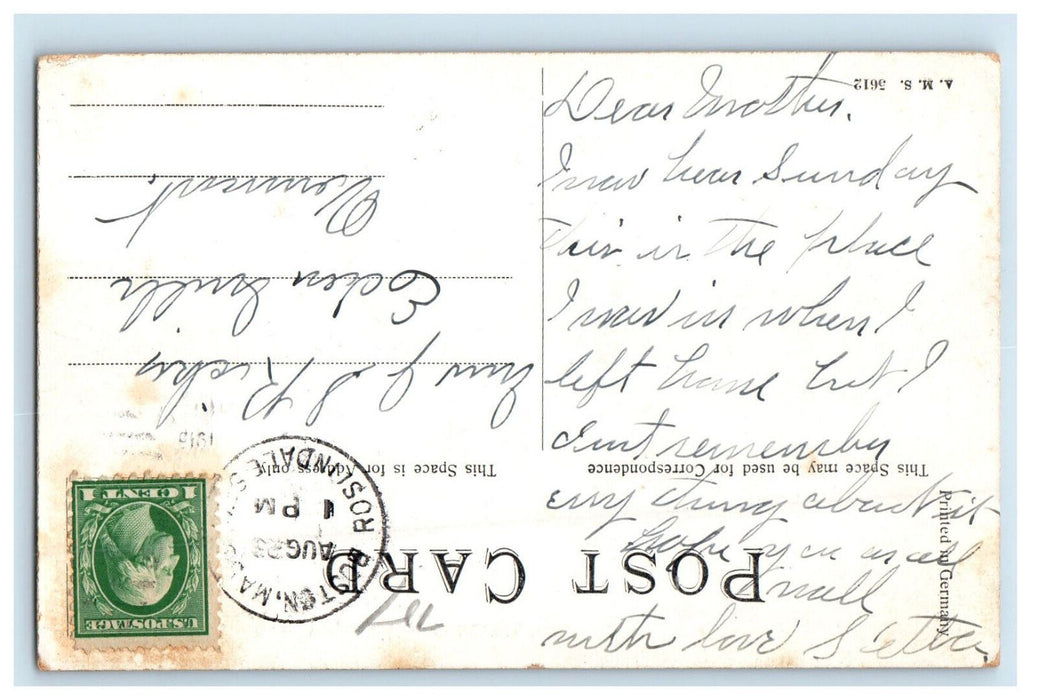 Dear Mother.
I was hear Sunday
this is the place
I was in when I
left home but I
dont remember
any thing about it
hope you are all
well
with love
A. M. S. 5612
This Space may be used for Correspondence
This Space is for Address only
Printed in Germany
POST CARD
J S Ricker
Eden Mills
Vermont.
BOSTON, MASS.
ROSLINDALE STA.
AUG 23
1 PM
U.S. POSTAGE
1 CENT 1